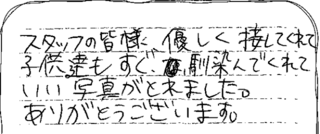 スタッフの皆様、優しく接してくれて
子供達もすぐ馴染んでくれて
いい写真がとれました。
ありがとうございます。